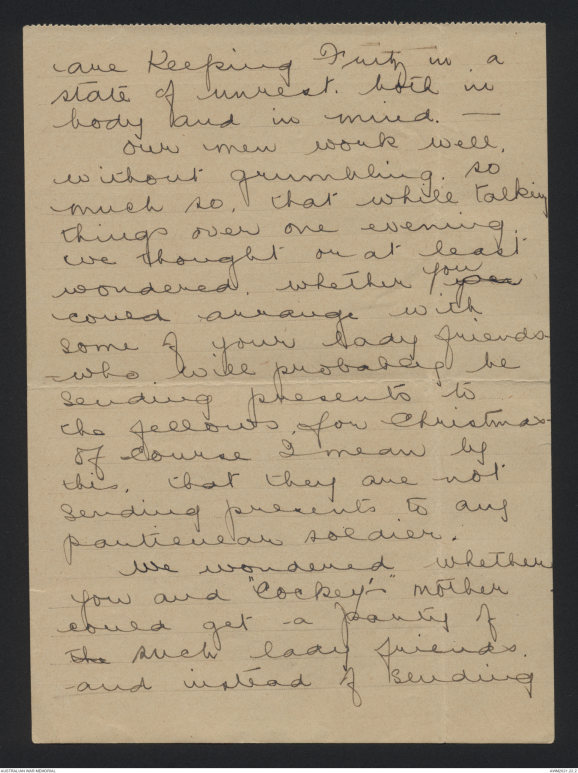 are Keeping Fritz in a
state of unrest. both in
body and in mind. —
our men work well.
without grumbling. so
much so. that while talking
things over one evening.
we thought or at least
wondered. whether you
could arrange with
some of your lady friends
-who will probably be
sending presents to
the fellows, for Christmas-
of course I mean by
this. that they are not
sending presents to any
particular soldier.
We wondered whether
you and "Cockey's" mother
could get a party of
the such lady friends.
and instead of sending
AUSTRALIAN WAR MEMORIAL